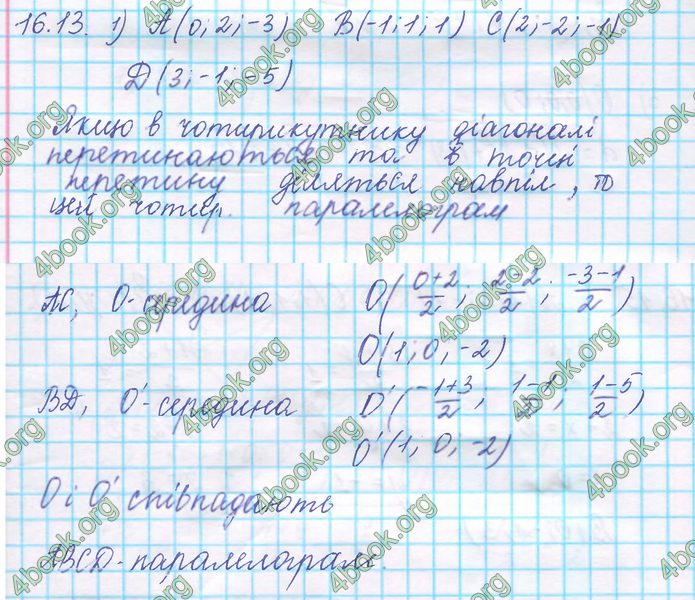 16.13. 1) A(0; 2; -3) B(-1; 1; 1) C(2; -2; -1)
D(3; -1; -5)
Якщо в чотирикутнику діагоналі
перетинаються та в точці
перетину діляться навпіл, то
цей чотир. паралелограм
AC, O-середина O((0+2)/2; (2-2)/2; (-3-1)/2)
O(1; 0, -2)
BD, O'-середина O'((-1+3)/2; (1-1)/2; (1-5)/2)
O'(1, 0, -2)
O і O' співпадають
ABCD-паралелограм.
4book.org